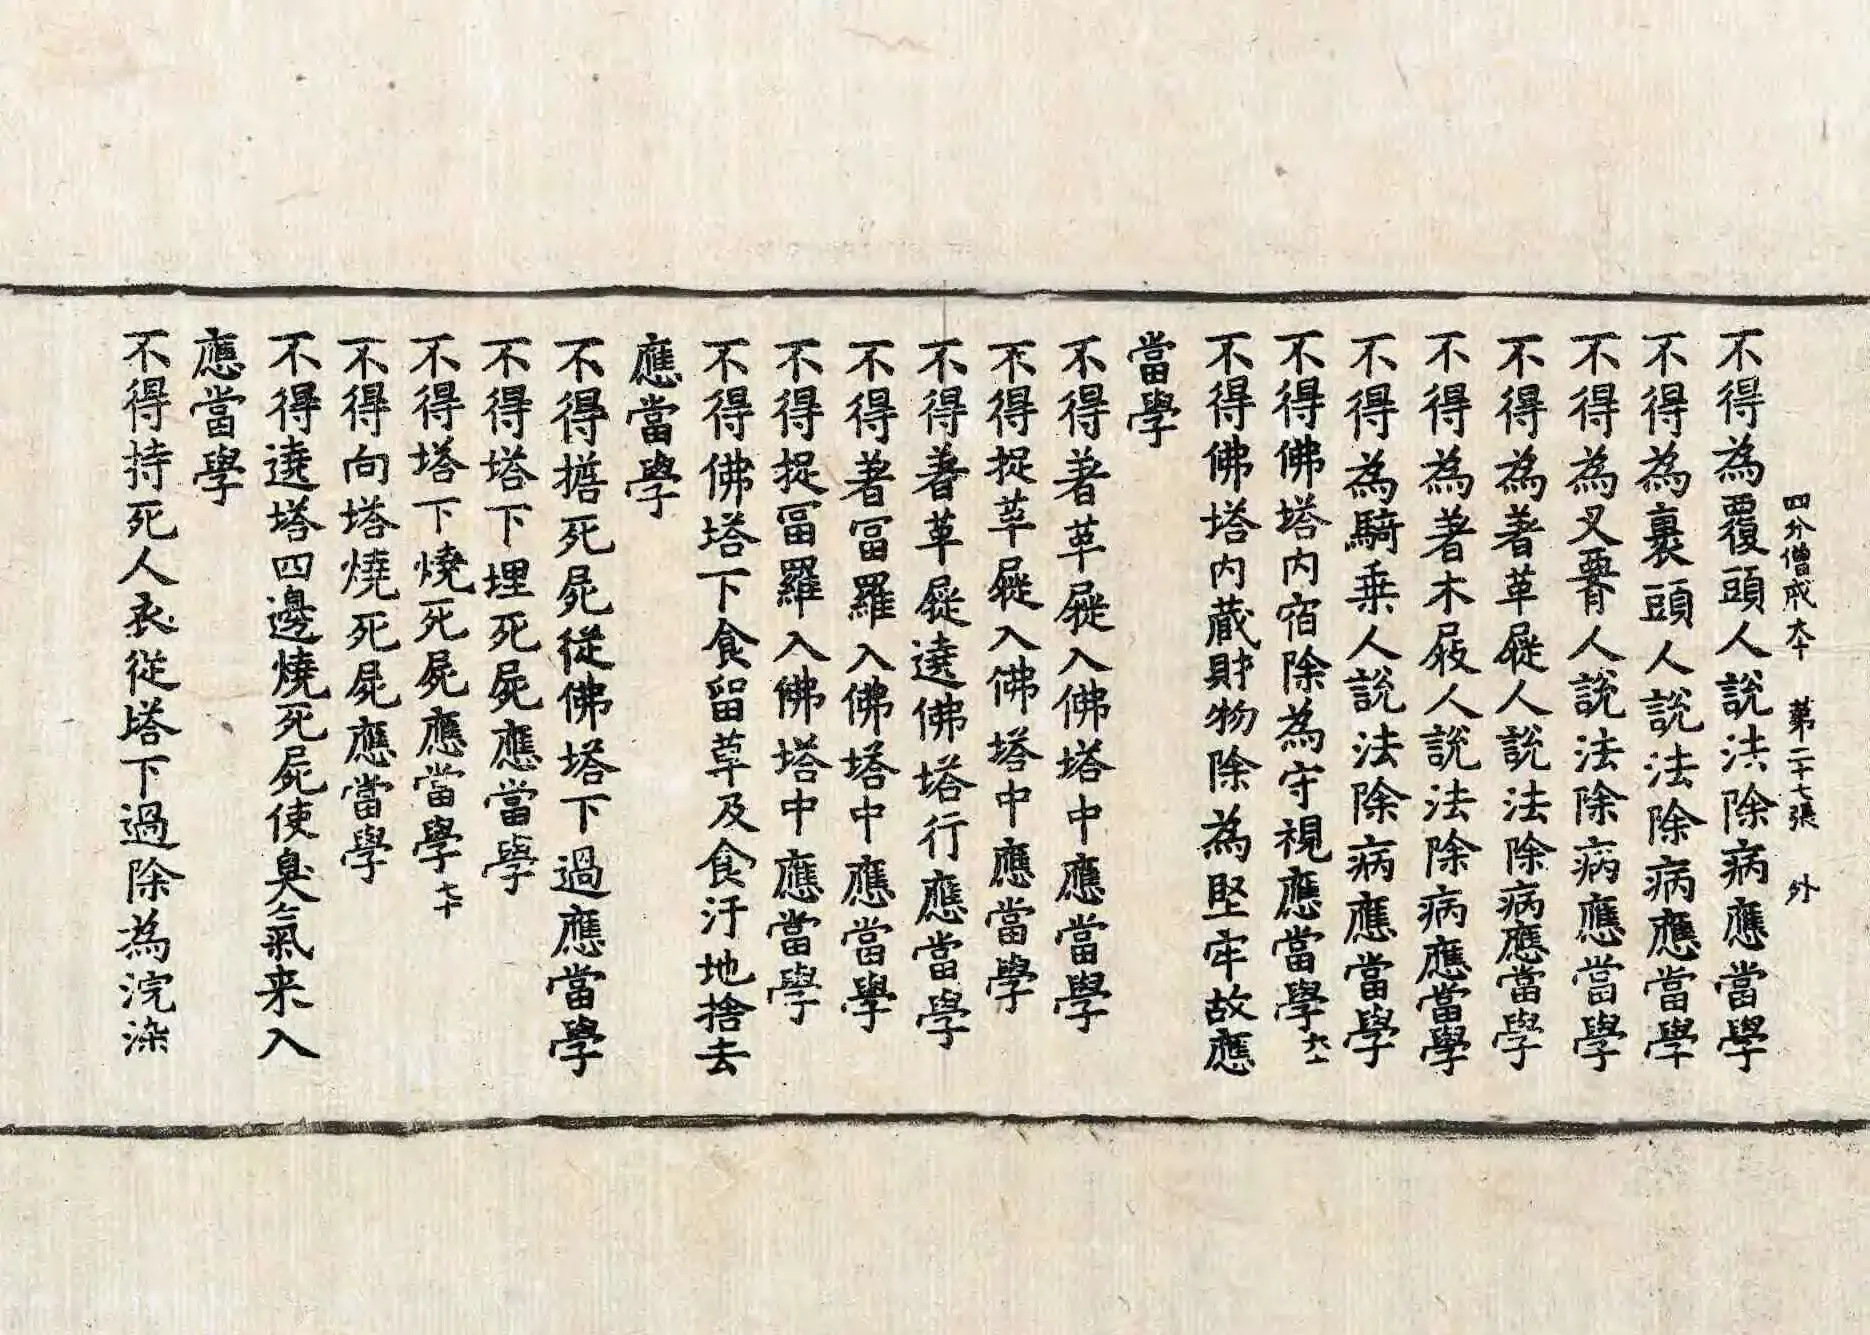 不得為覆頭人說法除病應當學
四分僧戒本 第二十七張 外
不得為裹頭人說法除病應當學
不得為叉𦝫人說法除病應當學
不得為著革屣人說法除病應當學
不得為著木屐人說法除病應當學
不得為騎乗人說法除病應當學
不得佛塔内宿除為守視應當學六十
不得佛塔内藏財物除為堅牢故應
當學
不得著革屣入佛塔中應當學
不得捉革屣入佛塔中應當學
不得著革屣遶佛塔行應當學
不得著富羅入佛塔中應當學
不得捉富羅入佛塔中應當學
不得佛塔下食留草及食汙地捨去
應當學
不得擔死屍從佛塔下過應當學
不得塔下埋死屍應當學
不得塔下燒死屍應當學七十
不得向塔燒死屍應當學
不得遶塔四邊燒死屍使臭氣来入
應當學
不得持死人衣從塔下過除為浣染